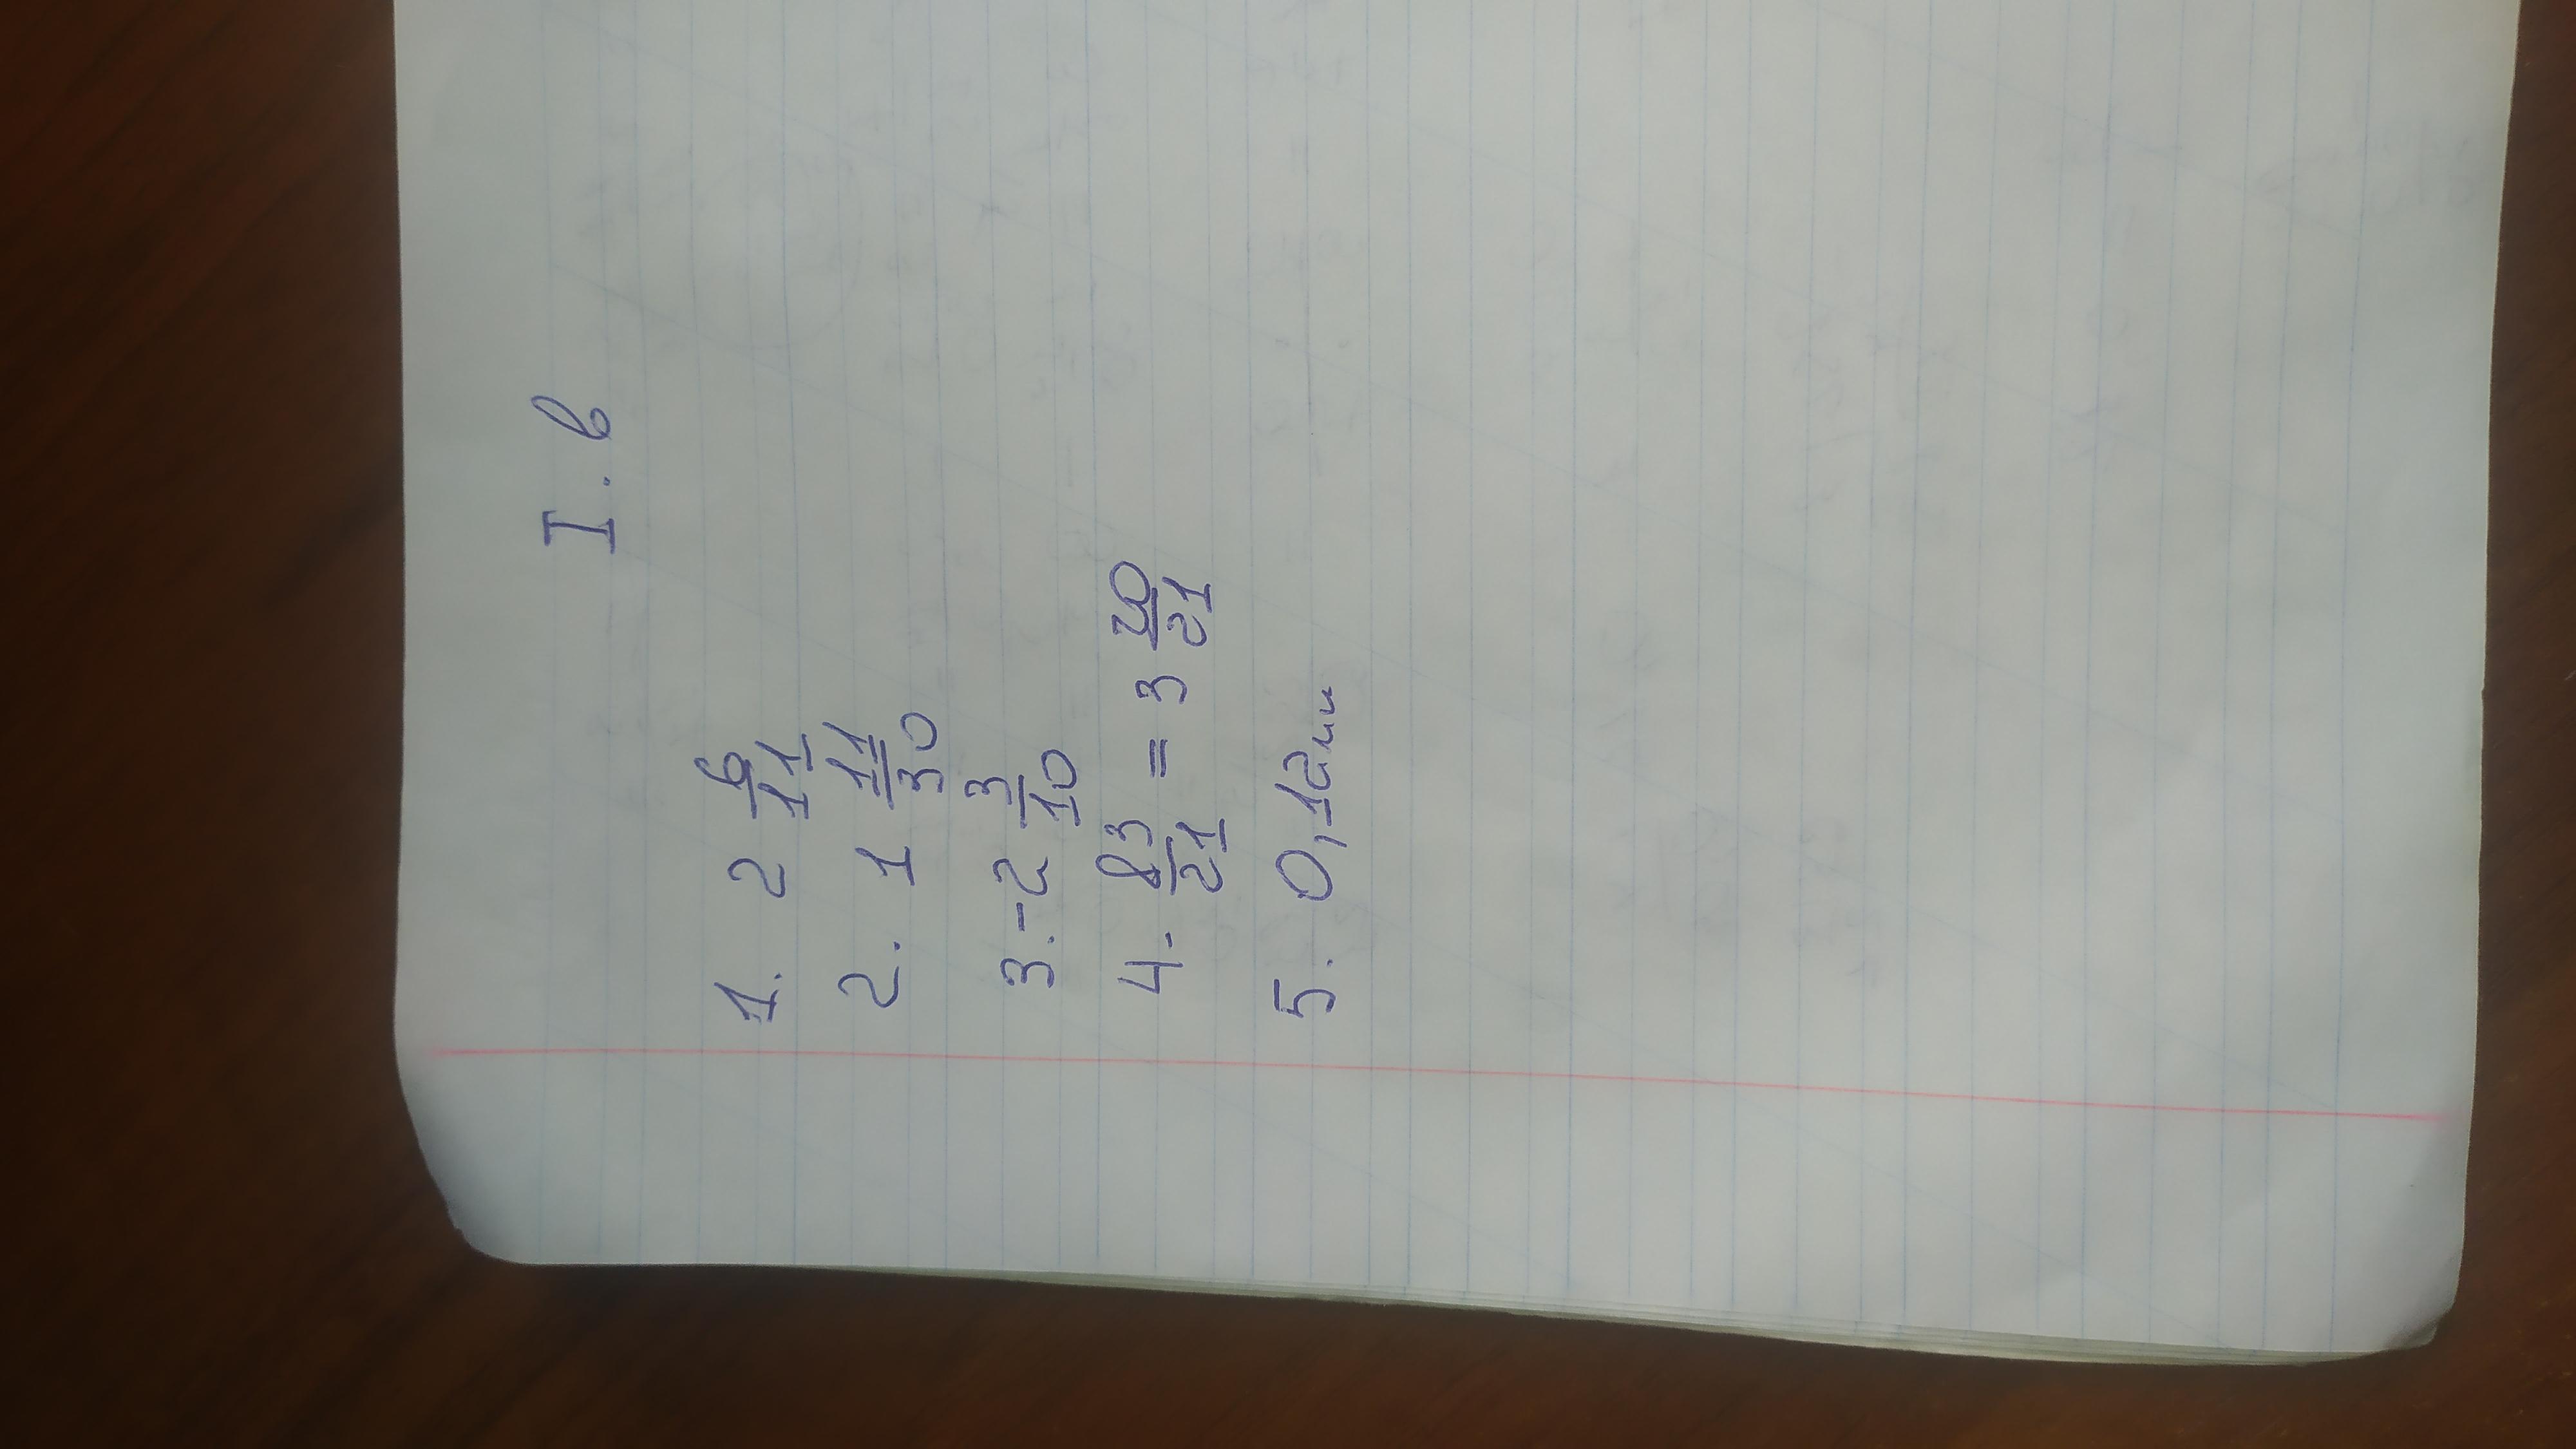 I. в
1. 2 6/11
2. 1 11/30
3. -2 3/10
4. 83/21 = 3 20/21
5. 0,12